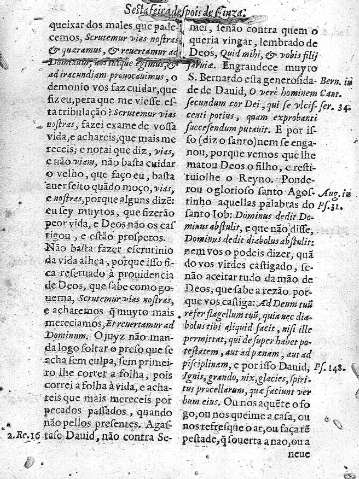 Sesta feira despois de Cinza.
queixar dos males que pade-
cemos, Scrutemur vias nostras,
& quæramus, & reuertamur ad
Dominum, nos inique egimus, &
ad iracundiam prouocauimus, o
demonio vos faz cuidar, que
fiz eu, pera que me viesse es-
ta tribulação? Scrutemur vias
nostras, fazei exame de vossa
vida, e achareis, que mais me
receis; e notai que diz, vias,
e não viam, não basta cuidar
o velho, que faço eu, basta
auer seito quãdo moço, vias,
e nostras, porque alguns dizẽ:
eu sey muytos, que fizerão
peor vida, e Deos não os ca-
stigou, e estão prosperos.
Não basta fazer escrutinio
da vida alhea, porque isso fi-
ca reseruado à prouidencia
de Deos, que sabe como go-
uerna, Scrutemur vias nostras,
e acharemos q̃ muyto mais
mereciamos, Et reuertamur ad
Dominum. O juyz não man-
da logo soltar o preso que se
acha sem culpa, sem primei-
ro lhe correr a folha, pois
correi a folha à vida, e acha-
reis que mais mereceis por
pecados passados, quando
não pellos presentes. Agas-
2. Re. 16 tase Dauid, não contra Se-
mei, senão contra quem o
queria vingar, lembrado de
Deos, Quid mihi, & vobis filij
Saruiæ. Engrandece muyto
S. Bernardo esta generosida- Bern. in
de de Dauid, O verè hominem Cant.
secundum cor Dei, qui se vlcis- ser. 34.
centi potius, quam exprobanti
succensendum putauit. E por is-
so (diz o santo) nem se enga-
nou, porque vemos que lhe
matou Deos o filho, e resti-
tuiolhe o Reyno. Ponde-
rou o glorioso santo Agos- Aug. in
tinho aquellas palabras do Ps. 31.
santo Iob: Dominus dedit Do-
minus abstulit, e que não disse,
Dominus dedit diabolus abstulit:
nem vos o podeis dizer, quã
do vos virdes castigado, se-
não aceitar tudo da mão de
Deos, que sabe a rezão por-
que vos castiga: Ad Deum tuũ
refer flagellum tuũ, quia nec dia-
bolus tibi aliquid facit, nisi ille
permittat, qui desuper habet po-
testatem, aut ad pœnam, aut ad
disciplinam, e por isso Dauid, Ps. 148.
Ignis, grando, nix, glacies, spiri-
tus procellarum, quæ faciunt ver
bum eius. Ou nos aquẽte o fo
go, ou nos queime a casa, ou
nos refresque o ar, ou faça tẽ
pestade, q̃ souerta a nao, ou a
neue